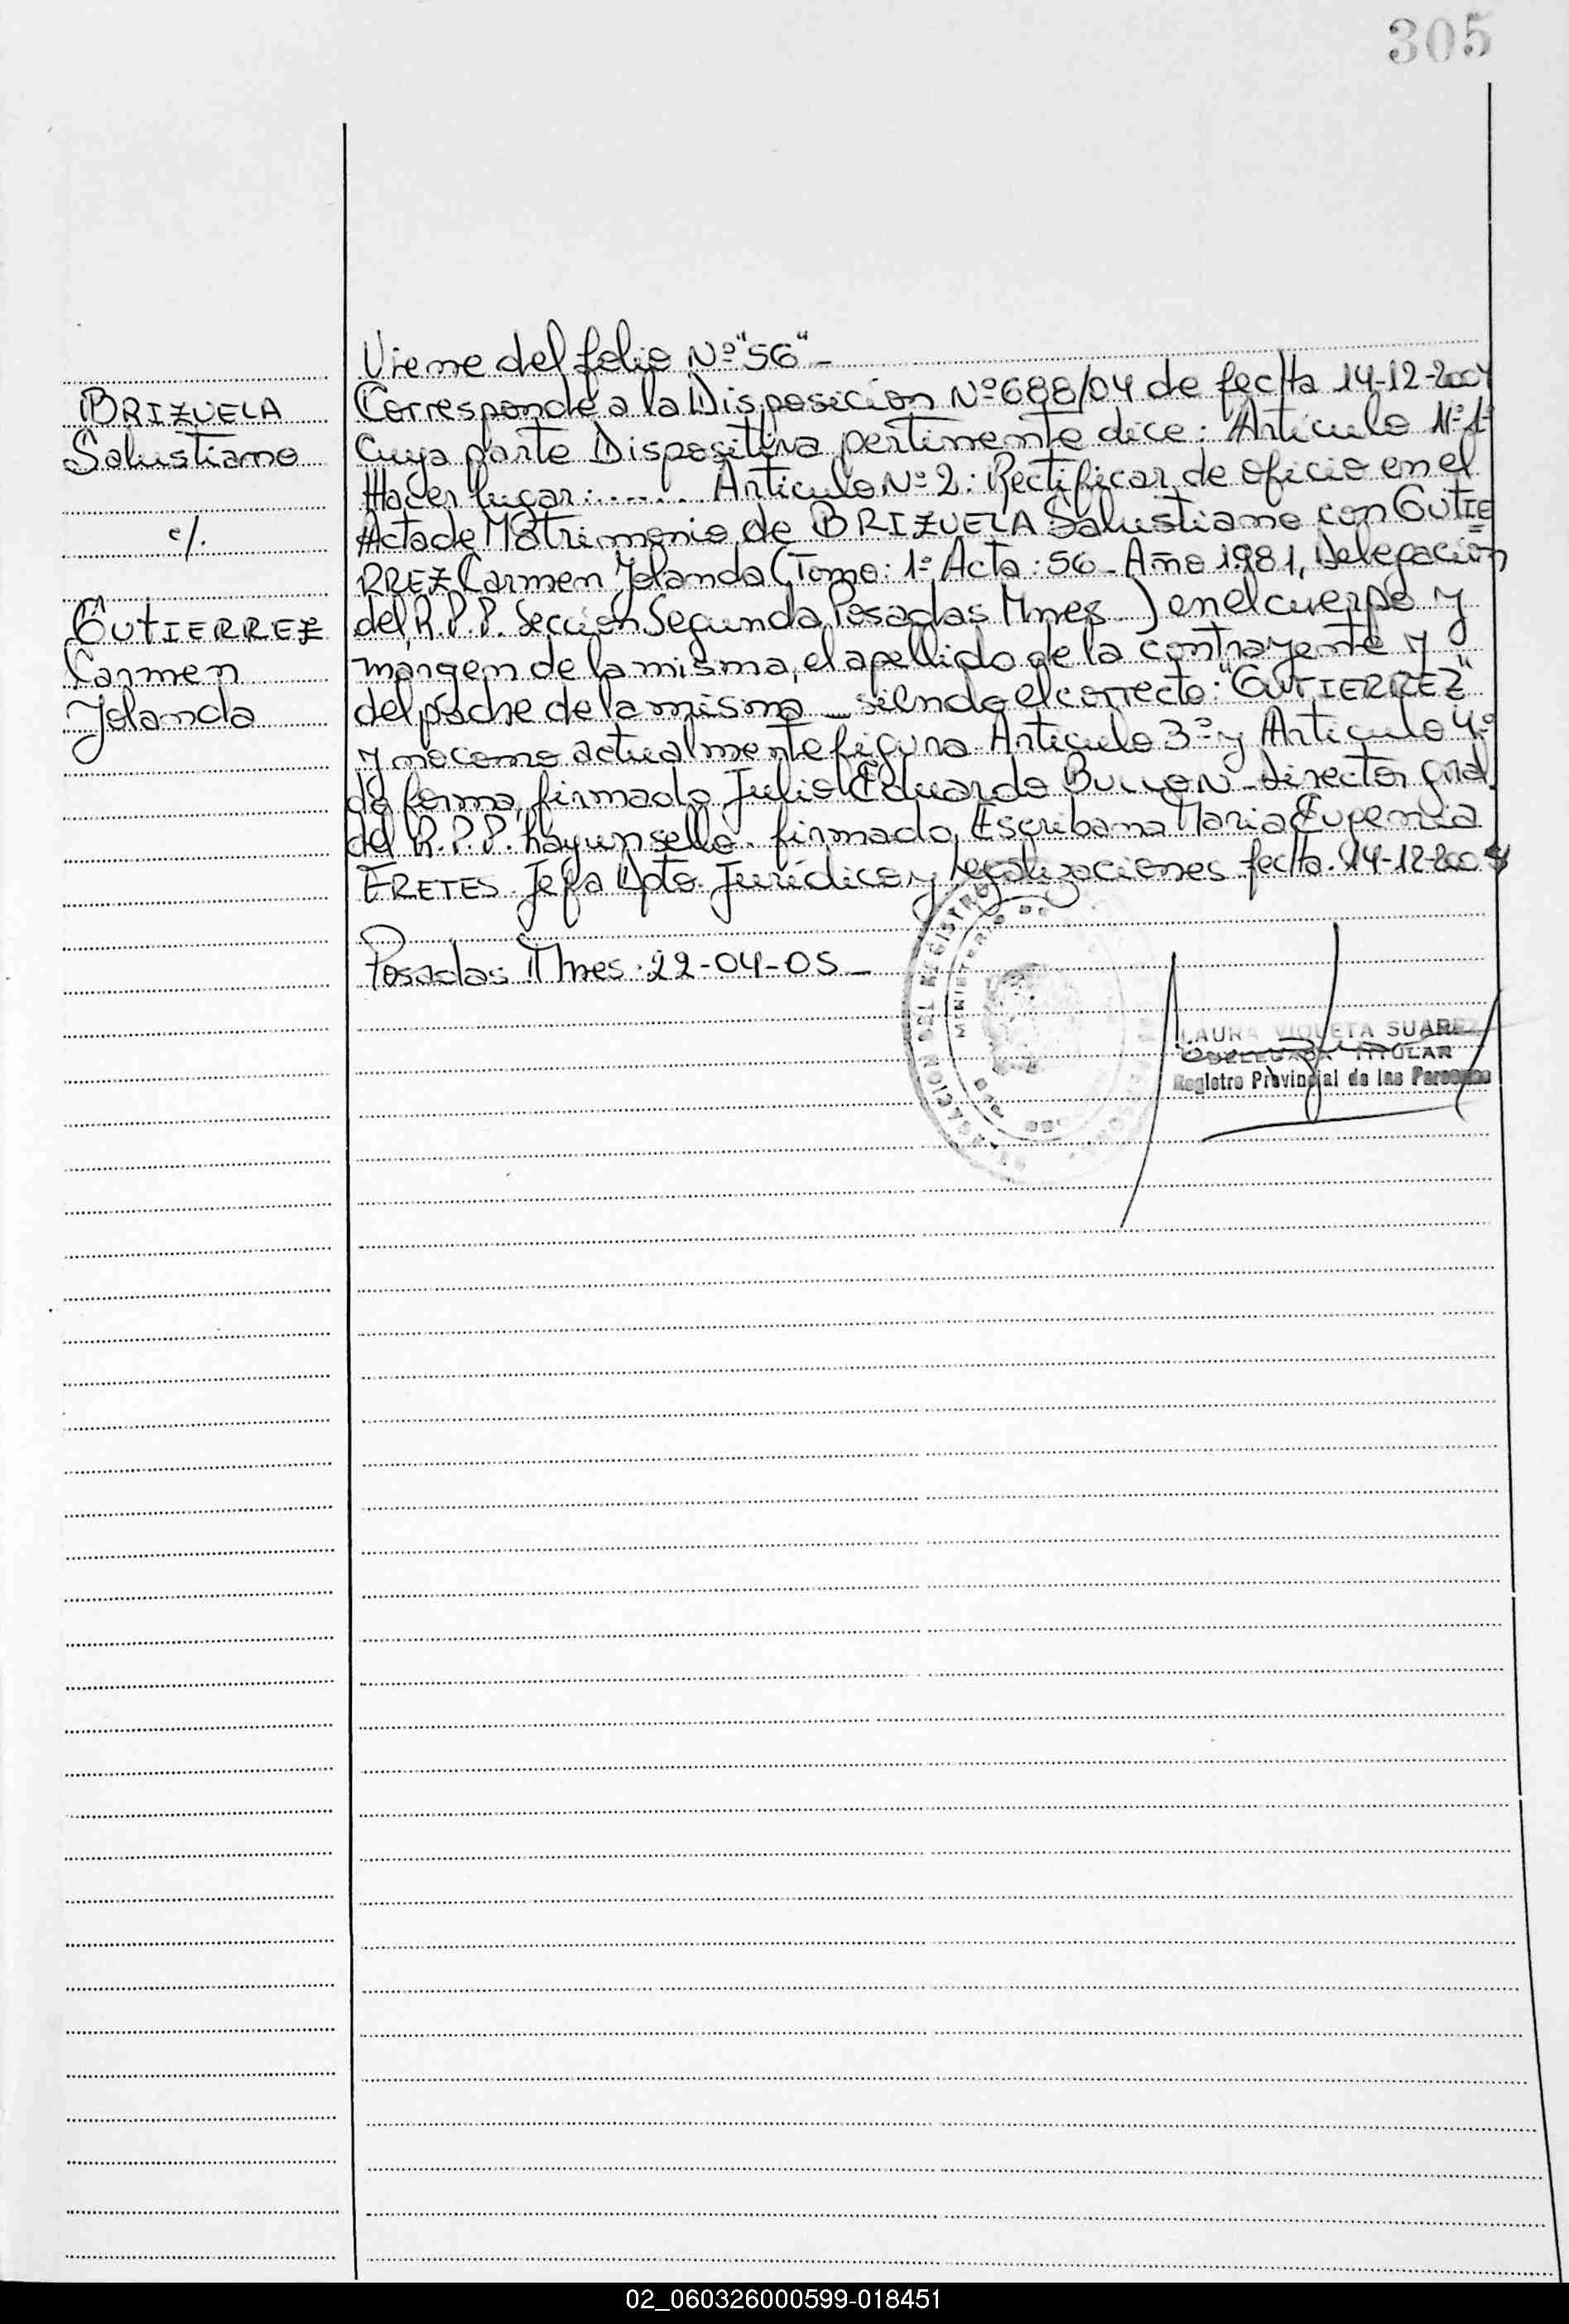 305
Viene del folio Nº "56"-
BRIZUELA
Salustiano
c/.
GUTIERREZ
Carmen
Yolanda
Corresponde a la Disposición Nº 688/04 de fecha 14-12-2004
Cuya parte Dispositiva pertinente dice: Artículo Nº 1º
Hacer lugar:....... Artículo Nº 2: Rectificar de oficio en el
Acta de Matrimonio de BRIZUELA Salustiano con GUTIE
RREZ Carmen Yolanda (Tomo: 1º Acta: 56 - Año 1981, Delegación
del R.P.P. Sección Segunda Posadas Mnes - ) en el cuerpo y
márgen de la misma, el apellido de la contrayente y
del padre de la misma - siendo el correcto: "GUTIERREZ"
y no como actualmente figura Artículo 3º y Artículo 4º
de forma, firmado Julio Eduardo - Director Gral.
del R.P.P. hay un sello. firmado, Escribana Maria Eugenia
FRETES. Jefa Dpto. Jurídico y Legalizaciones fecha. 14-12-2004
Posadas Mnes. 22-04-05-
LAURA VIOLETA SUAREZ
DELEGADA TITULAR
Registro Provincial de las Personas
DELEGACION DEL REGISTRO
MINISTERIO DE
02_060326000599-018451